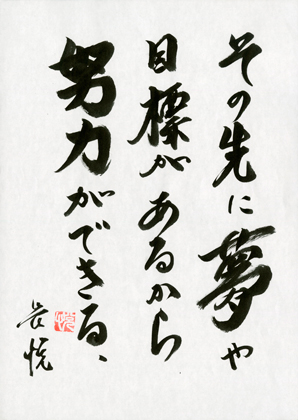 その先に夢や
目標があるから
努力ができる、